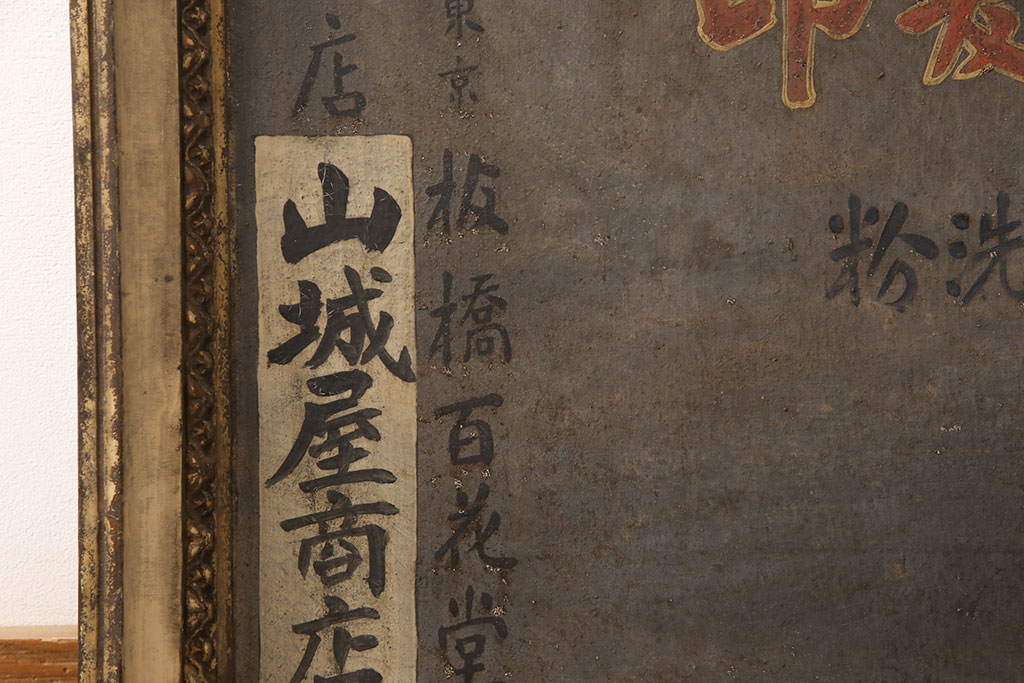 印
洗粉
東京 板橋百花堂
店
山城屋商店